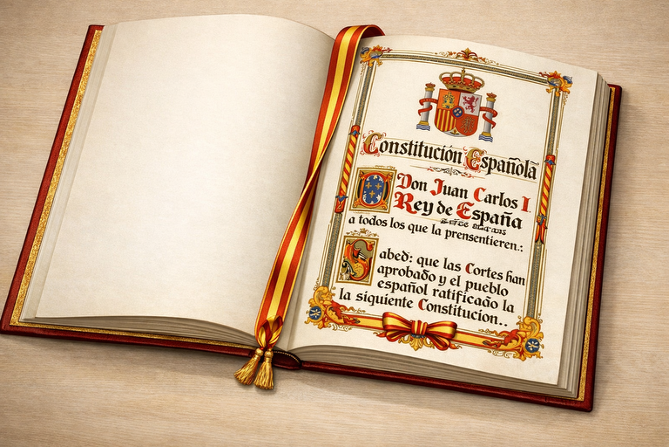 Constitución Española
Don Juan Carlos I.
Rey de España
a todos los que la prensentieren.:
Sabed: que las Cortes han
aprobado y el pueblo
español ratificado la
la siquiente Constitucion..